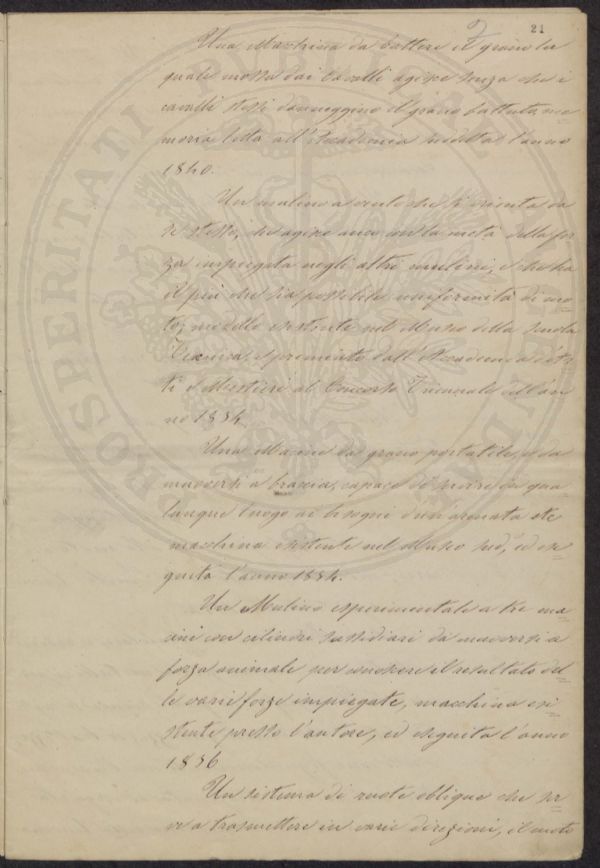 21
Una Macchina da battere il grano la
quale mossa dai Cavalli agisce senza che i
cavalli stessi danneggino il grano battuto, me=
moria letta all'Accademia suddetta l'anno
1840.
Un mulino a vento che si orienta da
se stesso, che agisce anco con la metà della for=
za impiegata negli altri mulini, e che ha
il più che sia possibile uniformità di mo=
to, modello esistente nel Museo della scuola
Tecnica, e premiato dall'Accademia d'Ar=
ti e Mestieri al Concorso Triennale dell'an=
no 1854.
Una Macine da grano portatile, e da
muoversi a braccia, capace di servire in qua=
lunque luogo ai bisogni di un'armata etc
macchina esistente nel Museo sud.o, ed ese=
guita l'anno 1854.
Un Mulino esperimentale a tre ma=
cini con cilindri sussidiari da muoversi a
forza animale per conoscere il resultato del=
le varie forze impiegate, macchina esi=
stente presso l'autore, ed eseguita l'anno
1856
Un sistema di ruote oblique che ser=
ve a trasmettere in varie direzioni, il moto
PROSPERITATI PUBLICAE AUGENDAE